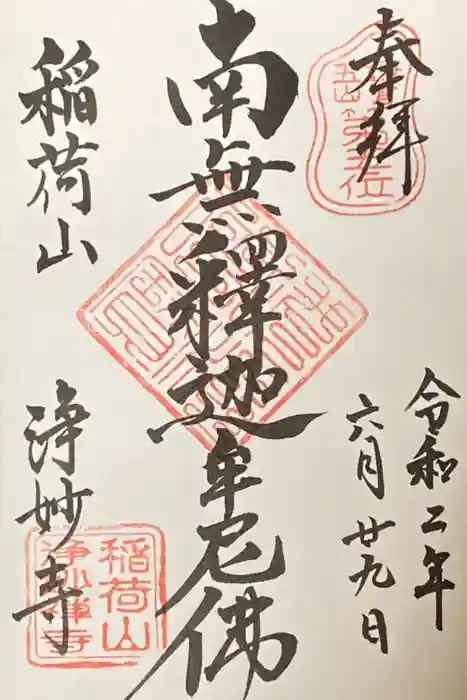 奉拝
令和二年
六月廿九日
南無釋迦牟尼佛
稲荷山
浄妙寺
稲荷山
浄妙禅寺